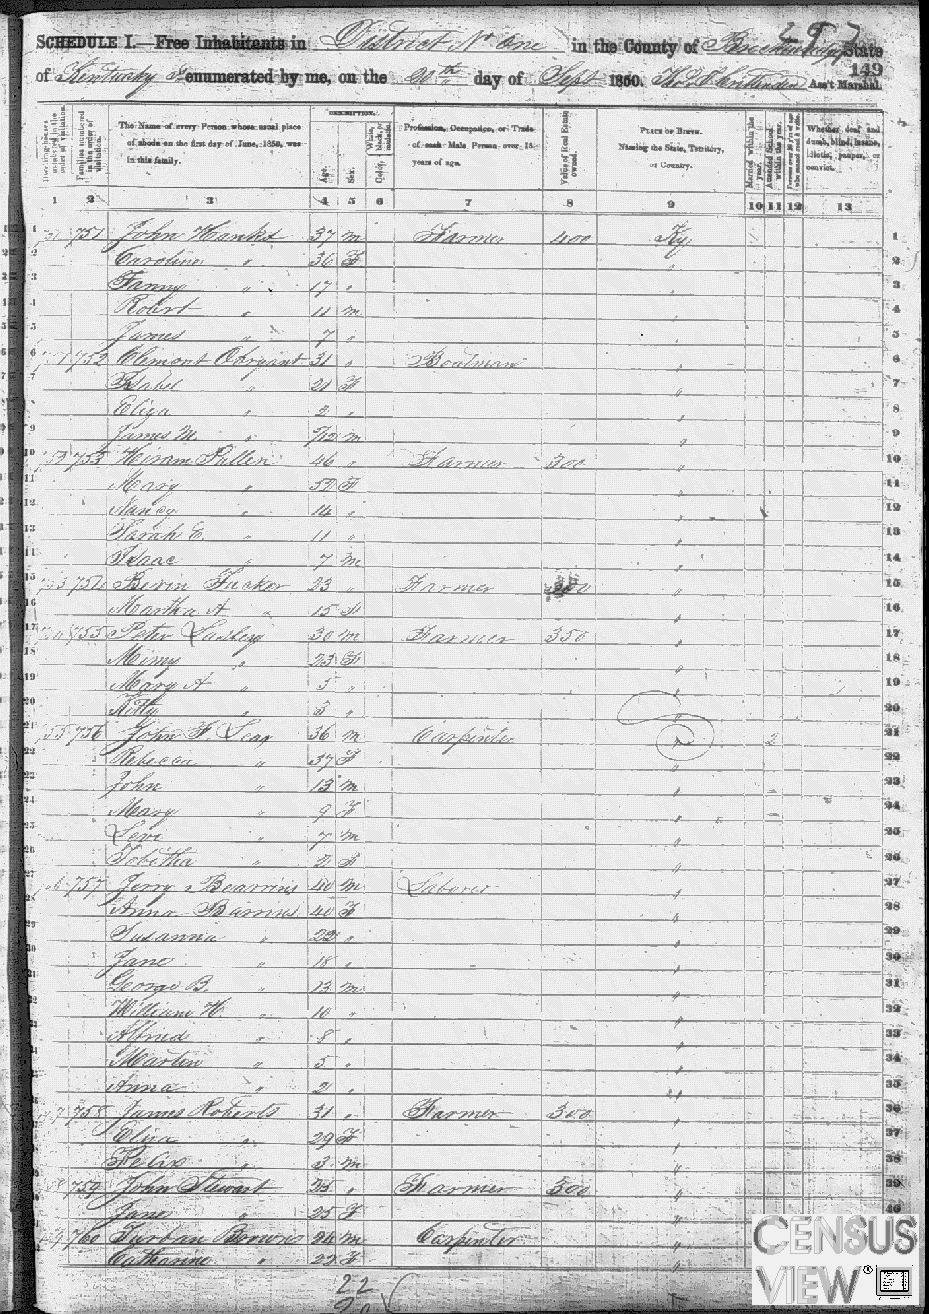 297
SCHEDULE I.—Free Inhabitants in District No One in the County of Breckinridge State
149
of Kentucky enumerated by me, on the 20th day of Sept 1850. Ass't Marshal.
Dwelling-houses numbered in the order of visitation.
Families numbered in the order of visitation.
The Name of every Person whose usual place of abode on the first day of June, 1850, was in this family.
DESCRIPTION.
Age.
Sex.
Color, White, black, or mulatto.
Profession, Occupation, or Trade of each Male Person over 15 years of age.
Value of Real Estate owned.
PLACE OF BIRTH. Naming the State, Territory, or Country.
Married within the year.
Attended School within the year.
Persons over 20 y'rs of age who cannot read & write.
Whether deaf and dumb, blind, insane, idiotic, pauper, or convict.
1 2 3 4 5 6 7 8 9 10 11 12 13
751 John Hanks 37 m Farmer 400 Ky 1
Caroline " 36 F " 2
Fanny " 17 " " 3
Robert " 11 m " 4
James " 7 " " 5
752 Clemont Obryant 31 " Boatman " 6
Isabel " 21 F " 7
Eliza " 2 " " 8
James M. " 7/12 m " 9
753 Hiram Pullen 46 " Farmer 300 " 10
Mary " 52 F " 11
Nancy " 14 " " 12
Sarah E. " 11 " " 13
Isaac " 7 m " 14
754 Bevin Tucker 23 " Farmer " 15
Martha A " 15 F " 16
755 Peter 30 m Farmer 350 " 17
Mimy " 23 F " 18
Mary A " 5 " " 19
Kitty " 3 " " 20
756 John F. Lear 36 m Carpenter " 2 21
Rebecca " 37 F " 22
John " 13 m " 23
Mary " 9 F " 24
Levi " 7 m " 25
Tobitha " 2 F " 26
757 Jerry Bearrins 40 m Laborer " 27
Anna Barrins 40 F " 28
Susanna " 22 " " 29
Jane " 18 " " 30
George B. " 13 m " 31
William H. " 10 " " 32
Alfred " 8 " " 33
Marten " 5 " " 34
Anna " 2 " " 35
758 James Roberts 31 " Farmer 300 " 36
Eliza " 29 F " 37
Felix " 3 m " 38
759 John Stewart 25 " Farmer 300 " 39
Jane " 25 F " 40
760 Brown 24 m Carpenter "
Catharine " 22 F "
22
20
CENSUS
VIEW